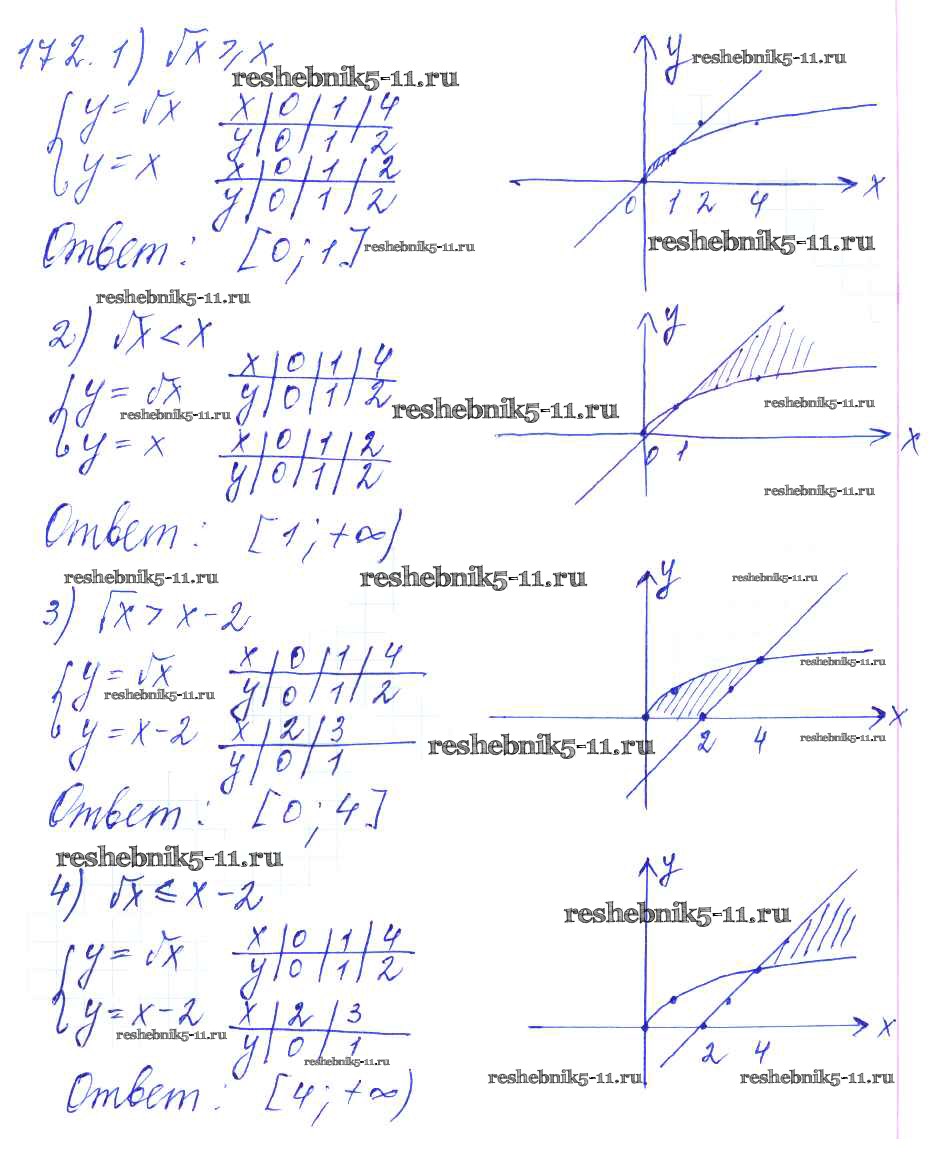 172. 1) √x ≥ x
reshebnik5-11.ru
y
reshebnik5-11.ru
{ y = √x
x | 0 | 1 | 4
y | 0 | 1 | 2
y = x
x | 0 | 1 | 2
y | 0 | 1 | 2
0 1 2 4 x
Ответ: [0; 1]
reshebnik5-11.ru
reshebnik5-11.ru
reshebnik5-11.ru
2) √x < x
y
{ y = √x
x | 0 | 1 | 4
y | 0 | 1 | 2
reshebnik5-11.ru
reshebnik5-11.ru
reshebnik5-11.ru
y = x
x | 0 | 1 | 2
y | 0 | 1 | 2
0 1 x
reshebnik5-11.ru
Ответ: [1; +∞)
reshebnik5-11.ru
reshebnik5-11.ru
y
reshebnik5-11.ru
3) √x > x - 2
{ y = √x
x | 0 | 1 | 4
y | 0 | 1 | 2
reshebnik5-11.ru
reshebnik5-11.ru
y = x - 2
x | 2 | 3
y | 0 | 1
reshebnik5-11.ru
2 4 x
reshebnik5-11.ru
Ответ: [0; 4]
reshebnik5-11.ru
y
4) √x ≤ x - 2
reshebnik5-11.ru
{ y = √x
x | 0 | 1 | 4
y | 0 | 1 | 2
y = x - 2
x | 2 | 3
y | 0 | 1
reshebnik5-11.ru
reshebnik5-11.ru
2 4 x
reshebnik5-11.ru
reshebnik5-11.ru
Ответ: [4; +∞)